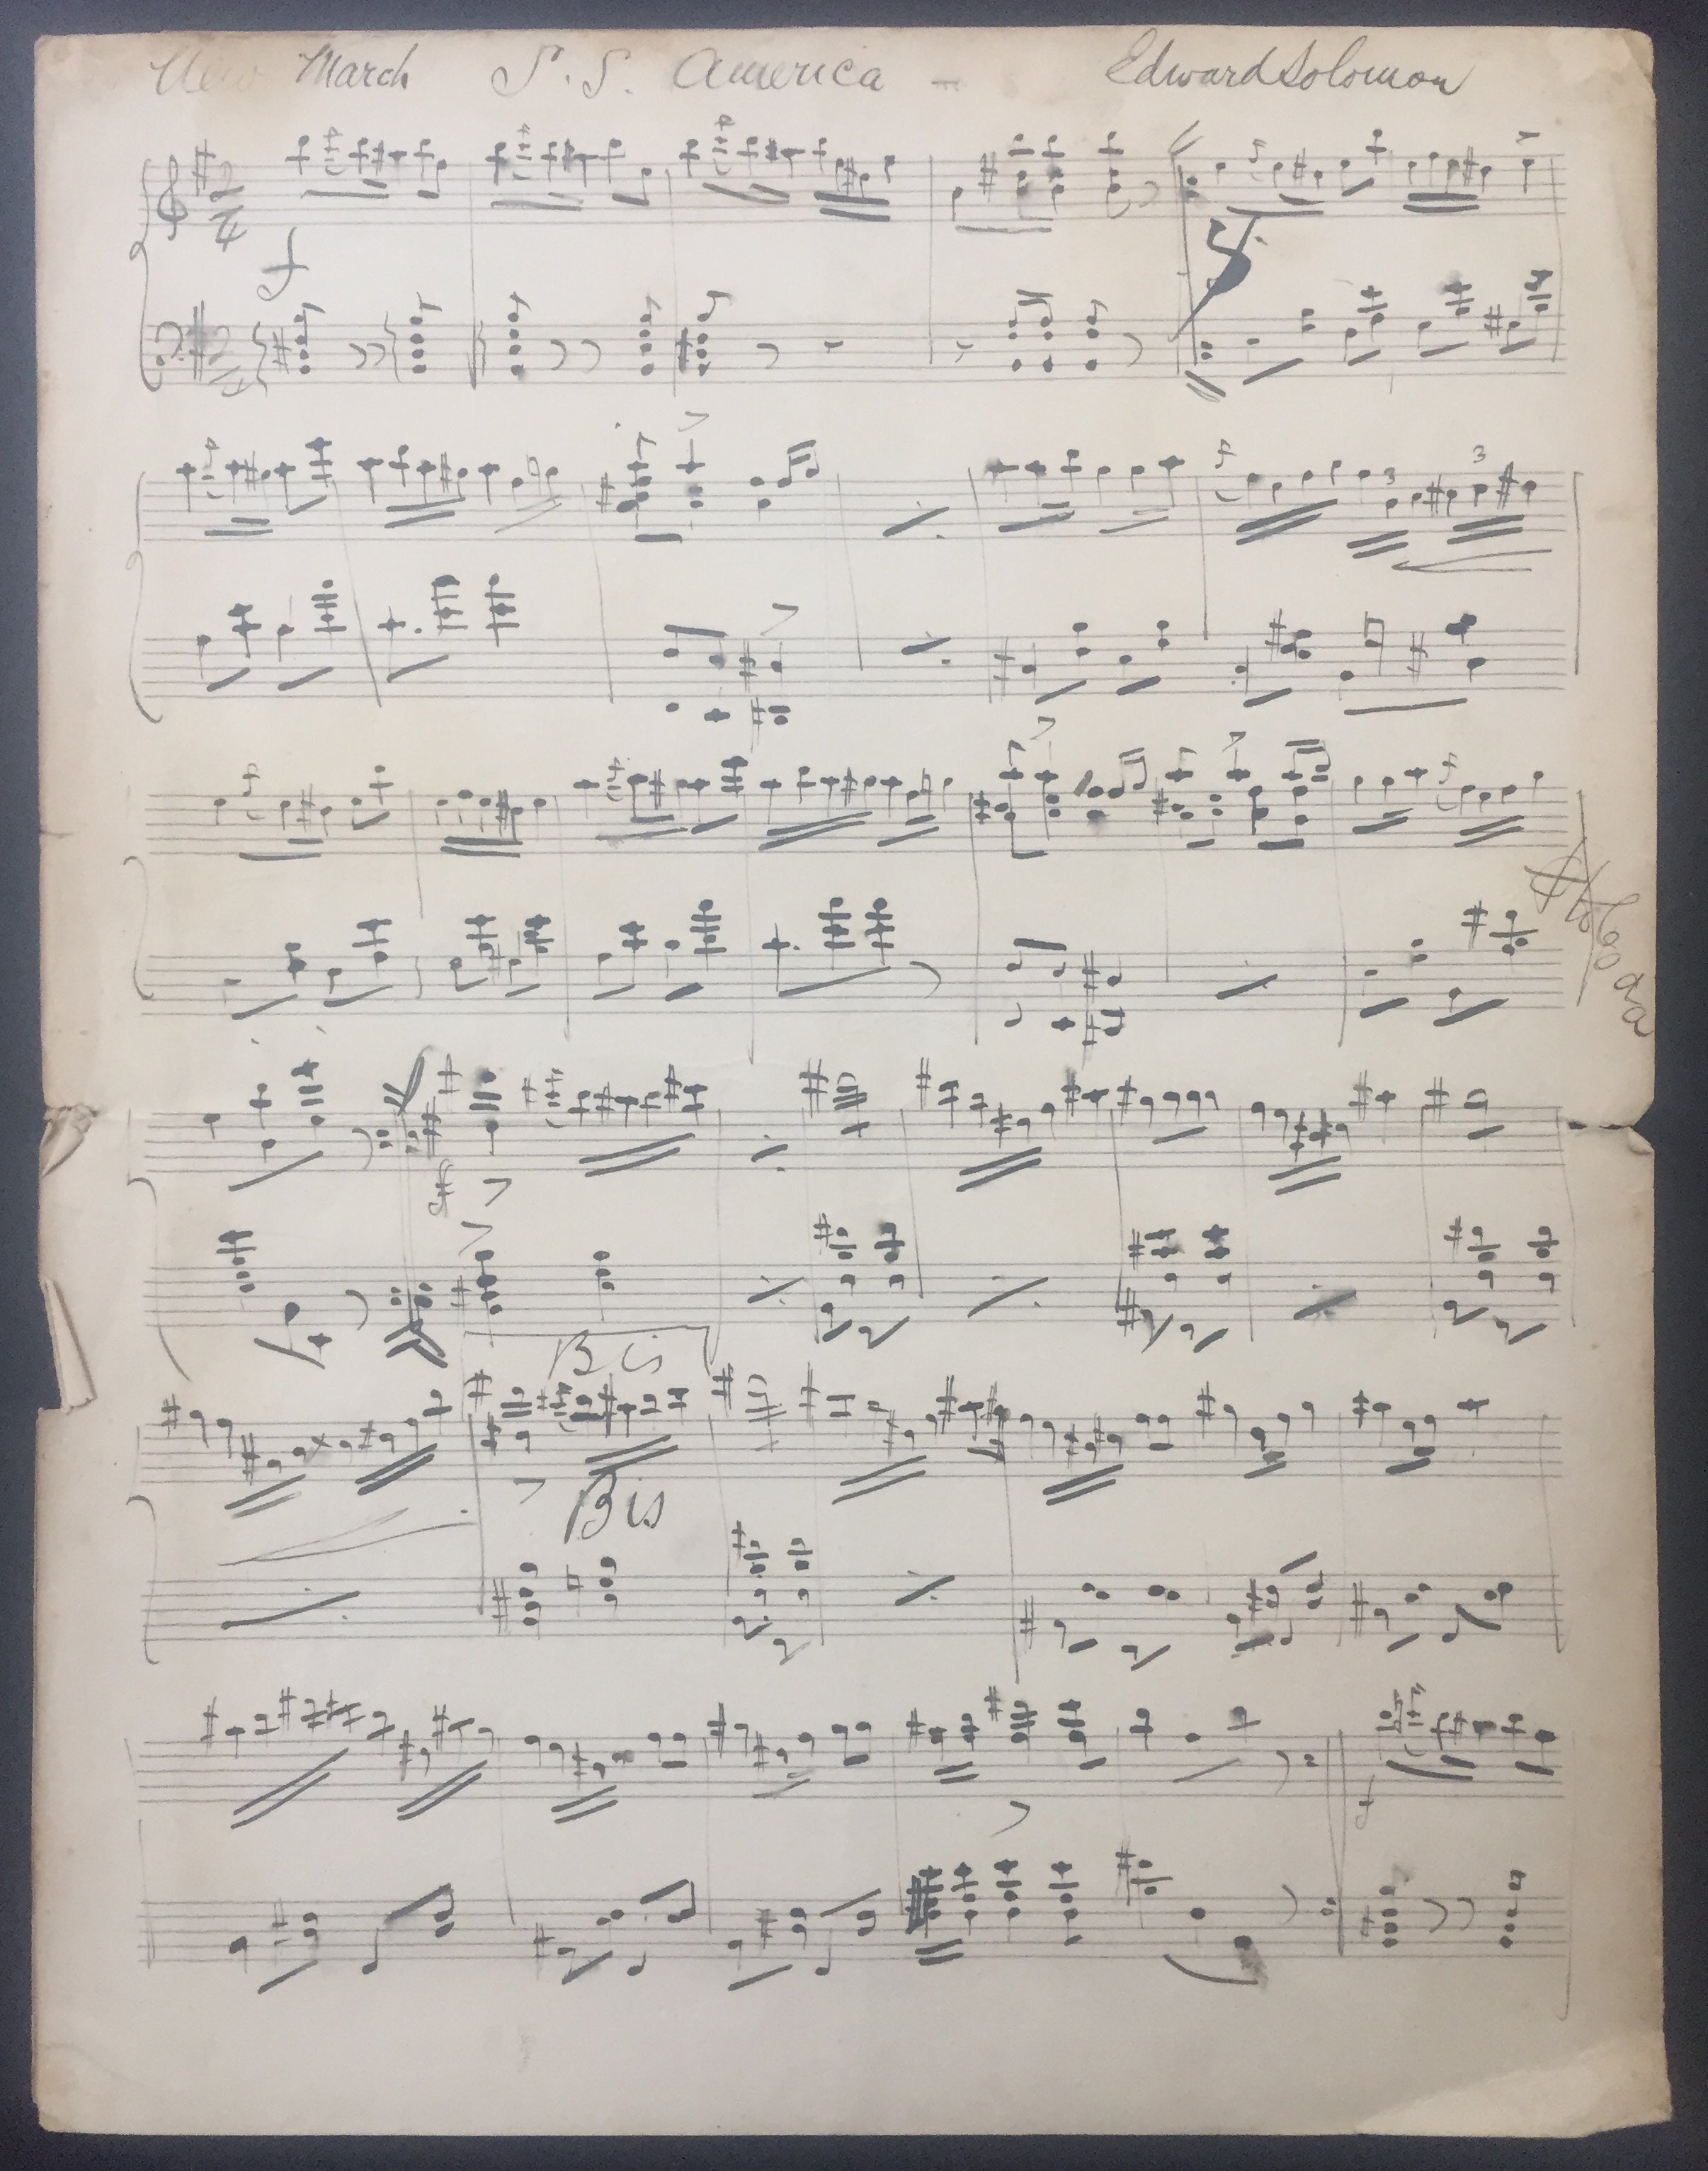 New March S. S. America - Edward Solomon
2
4
f
3 3
Bis
Bis
f